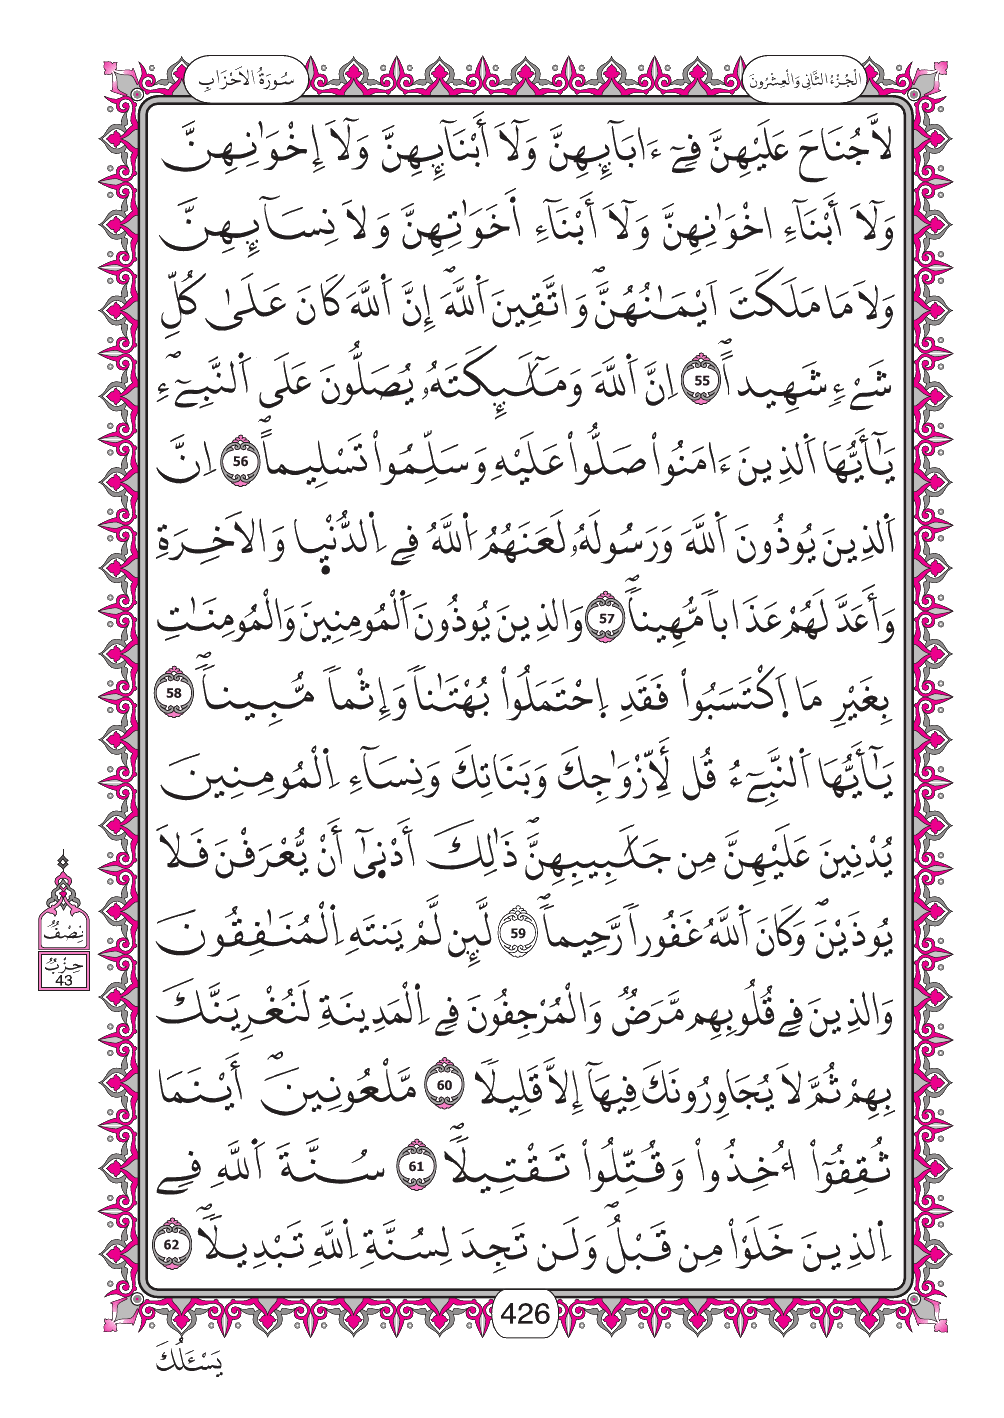 الْجُزْءُ الثَّانِي وَالْعِشْرُونَ
سُورَةُ الْأَحْزَابِ
لَّا جُنَاحَ عَلَيْهِنَّ فِےٓ ءَابَآئِهِنَّ وَلَآ أَبْنَآئِهِنَّ وَلَآ إِخْوَٰنِهِنَّ
وَلَآ أَبْنَآءِ اخْوَٰنِهِنَّ وَلَآ أَبْنَآءِ اَ۬خَوَٰتِهِنَّ وَلَا نِسَآئِهِنَّ
وَلَا مَا مَلَكَتَ اَيْمَٰنُهُنَّۖ وَاتَّقِينَ اَ۬للَّهَۖ إِنَّ اَ۬للَّهَ كَانَ عَلَىٰ كُلِّ
شَےْءٖ شَهِيداًۖ 55 اِنَّ اَ۬للَّهَ وَمَلَٰٓئِكَتَهُۥ يُصَلُّونَ عَلَى اَ۬لنَّبِےٓءِۖ
يَٰٓأَيُّهَا اَ۬لذِينَ ءَامَنُواْ صَلُّواْ عَلَيْهِ وَسَلِّمُواْ تَسْلِيماًۖ 56 اِنَّ
اَ۬لذِينَ يُوذُونَ اَ۬للَّهَ وَرَسُولَهُۥ لَعَنَهُمُ اُ۬للَّهُ فِے اِ۬لدُّنْي۪ا وَالَاخِرَةِ
وَأَعَدَّ لَهُمْ عَذَاباٗ مُّهِيناٗۖ 57 وَالذِينَ يُوذُونَ اَ۬لْمُومِنِينَ وَالْمُومِنَٰتِ
بِغَيْرِ مَا اَ۪كْتَسَبُواْ فَقَدِ اِ۪حْتَمَلُواْ بُهْتَٰناٗ وَإِثْماٗ مُّبِيناٗۖ 58
يَٰٓأَيُّهَا اَ۬لنَّبِےٓءُ قُل لِّأَزْوَٰجِكَ وَبَنَاتِكَ وَنِسَآءِ اِ۬لْمُومِنِينَ
يُدْنِينَ عَلَيْهِنَّ مِن جَلَٰبِيبِهِنَّۖ ذَٰلِكَ أَدْن۪يٰٓ أَنْ يُّعْرَفْنَ فَلَا
يُوذَيْنَۖ وَكَانَ اَ۬للَّهُ غَفُوراٗ رَّحِيماًۖ 59 لَّئِن لَّمْ يَنتَهِ اِ۬لْمُنَٰفِقُونَ
وَالذِينَ فِے قُلُوبِهِم مَّرَضٞ وَالْمُرْجِفُونَ فِے اِ۬لْمَدِينَةِ لَنُغْرِيَنَّكَ
بِهِمْ ثُمَّ لَا يُجَاوِرُونَكَ فِيهَآ إِلَّا قَلِيلاٗ 60 مَّلْعُونِينَۖ أَيْنَمَا
ثُقِفُوٓاْ أُخِذُواْ وَقُتِّلُواْ تَقْتِيلاٗۖ 61 سُنَّةَ اَ۬للَّهِ فِے
اِ۬لذِينَ خَلَوْاْ مِن قَبْلُۖ وَلَن تَجِدَ لِسُنَّةِ اِ۬للَّهِ تَبْدِيلاٗۖ 62
نِصْفُ
حِزْبٌ
43
426
يَسْـَٔلُكَ